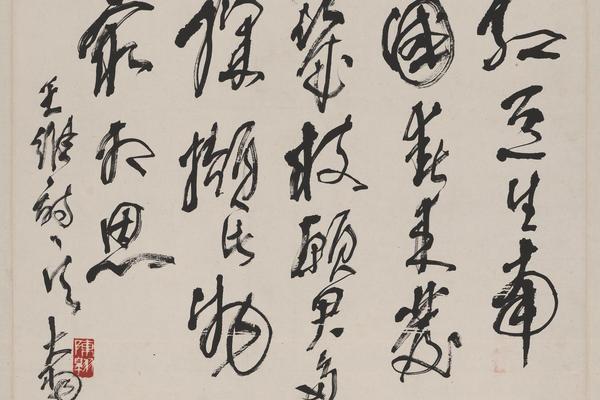 紅豆生南
國春来發
幾枝願君多
採擷此物
最相思
王維詩
大羽